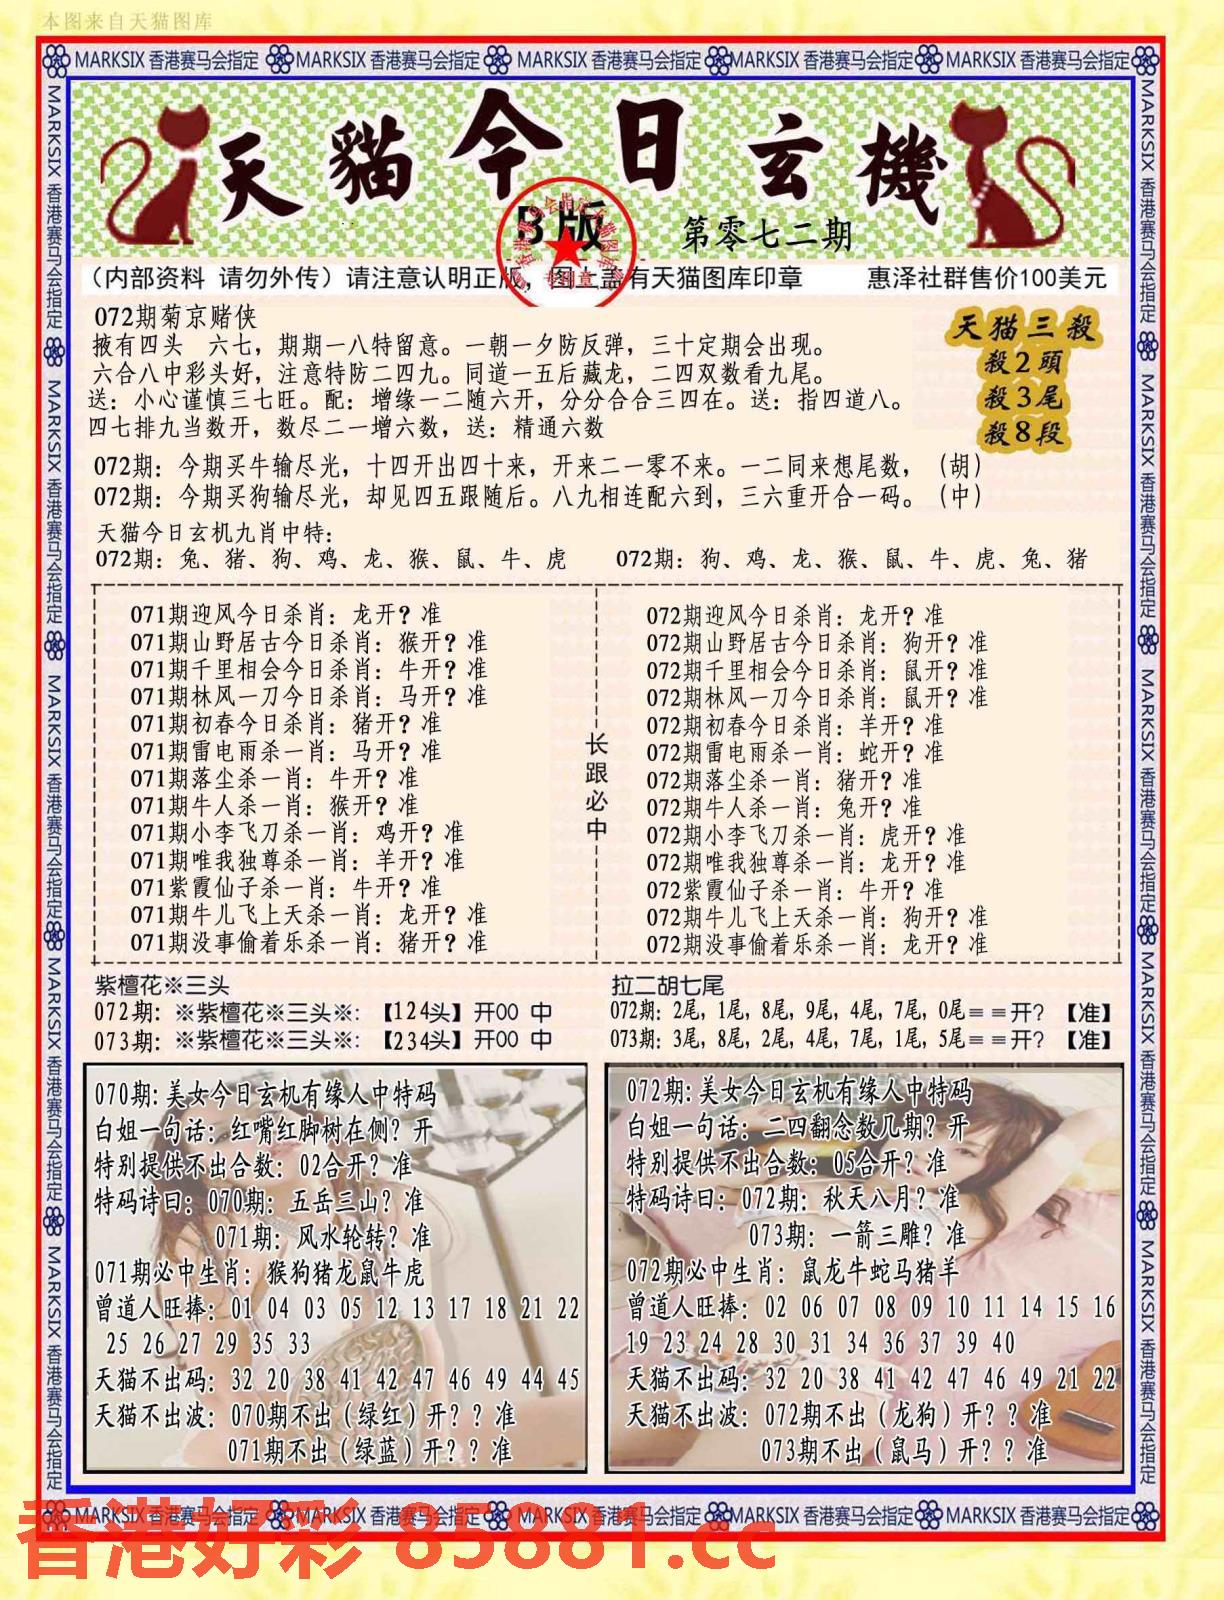 本图来自天猫图库
MARKSIX 香港赛马会指定 MARKSIX 香港赛马会指定 MARKSIX 香港赛马会指定 MARKSIX 香港赛马会指定 MARKSIX 香港赛马会指定
天貓今日玄機
B版
第零七二期
（内部资料 请勿外传）请注意认明正版，图上盖有天猫图库印章 惠泽社群售价100美元
072期菊京赌侠
掖有四头 六七，期期一八特留意。一朝一夕防反弹，三十定期会出现。
六合八中彩头好，注意特防二四九。同道一五后藏龙，二四双数看九尾。
送：小心谨慎三七旺。配：增缘一二随六开，分分合合三四在。送：指四道八。
四七排九当数开，数尽二一增六数，送：精通六数
天猫三殺
殺2頭
殺3尾
殺8段
072期：今期买牛输尽光，十四开出四十来，开来二一零不来。一二同来想尾数，（胡）
072期：今期买狗输尽光，却见四五跟随后。八九相连配六到，三六重开合一码。（中）
天猫今日玄机九肖中特：
072期：兔、猪、狗、鸡、龙、猴、鼠、牛、虎
072期：狗、鸡、龙、猴、鼠、牛、虎、兔、猪
071期迎风今日杀肖：龙开？准
071期山野居古今日杀肖：猴开？准
071期千里相会今日杀肖：牛开？准
071期林风一刀今日杀肖：马开？准
071期初春今日杀肖：猪开？准
071期雷电雨杀一肖：马开？准
071期落尘杀一肖：牛开？准
071期牛人杀一肖：猴开？准
071期小李飞刀杀一肖：鸡开？准
071期唯我独尊杀一肖：羊开？准
071紫霞仙子杀一肖：牛开？准
071期牛儿飞上天杀一肖：龙开？准
071期没事偷着乐杀一肖：猪开？准
长跟必中
072期迎风今日杀肖：龙开？准
072期山野居古今日杀肖：狗开？准
072期千里相会今日杀肖：鼠开？准
072期林风一刀今日杀肖：鼠开？准
072期初春今日杀肖：羊开？准
072期雷电雨杀一肖：蛇开？准
072期落尘杀一肖：猪开？准
072期牛人杀一肖：兔开？准
072期小李飞刀杀一肖：虎开？准
072期唯我独尊杀一肖：龙开？准
072紫霞仙子杀一肖：牛开？准
072期牛儿飞上天杀一肖：狗开？准
072期没事偷着乐杀一肖：龙开？准
紫檀花※三头
072期：※紫檀花※三头※：【124头】开00 中
073期：※紫檀花※三头※：【234头】开00 中
拉二胡七尾
072期：2尾，1尾，8尾，9尾，4尾，7尾，0尾＝＝开？【准】
073期：3尾，8尾，2尾，4尾，7尾，1尾，5尾＝＝开？【准】
070期：美女今日玄机有缘人中特码
白姐一句话：红嘴红脚树在侧？开
特别提供不出合数：02合开？准
特码诗曰：070期：五岳三山？准
071期：风水轮转？准
071期必中生肖：猴狗猪龙鼠牛虎
曾道人旺捧：01 04 03 05 12 13 17 18 21 22
25 26 27 29 35 33
天猫不出码：32 20 38 41 42 47 46 49 44 45
天猫不出波：070期不出（绿红）开？？准
071期不出（绿蓝）开？？准
072期：美女今日玄机有缘人中特码
白姐一句话：二四翻念数几期？开
特别提供不出合数：05合开？准
特码诗曰：072期：秋天八月？准
073期：一箭三雕？准
072期必中生肖：鼠龙牛蛇马猪羊
曾道人旺捧：02 06 07 08 09 10 11 14 15 16
19 23 24 28 30 31 34 36 37 39 40
天猫不出码：32 20 38 41 42 47 46 49 21 22
天猫不出波：072期不出（龙狗）开？？准
073期不出（鼠马）开？？准
MARKSIX 香港赛马会指定 MARKSIX 香港赛马会指定 MARKSIX 香港赛马会指定 MARKSIX 香港赛马会指定 MARKSIX 香港赛马会指定
MARKSIX 香港赛马会指定 MARKSIX 香港赛马会指定 MARKSIX 香港赛马会指定 MARKSIX 香港赛马会指定 MARKSIX 香港赛马会指定
MARKSIX 香港赛马会指定 MARKSIX 香港赛马会指定 MARKSIX 香港赛马会指定 MARKSIX 香港赛马会指定 MARKSIX 香港赛马会指定
香港好彩 85881.cc